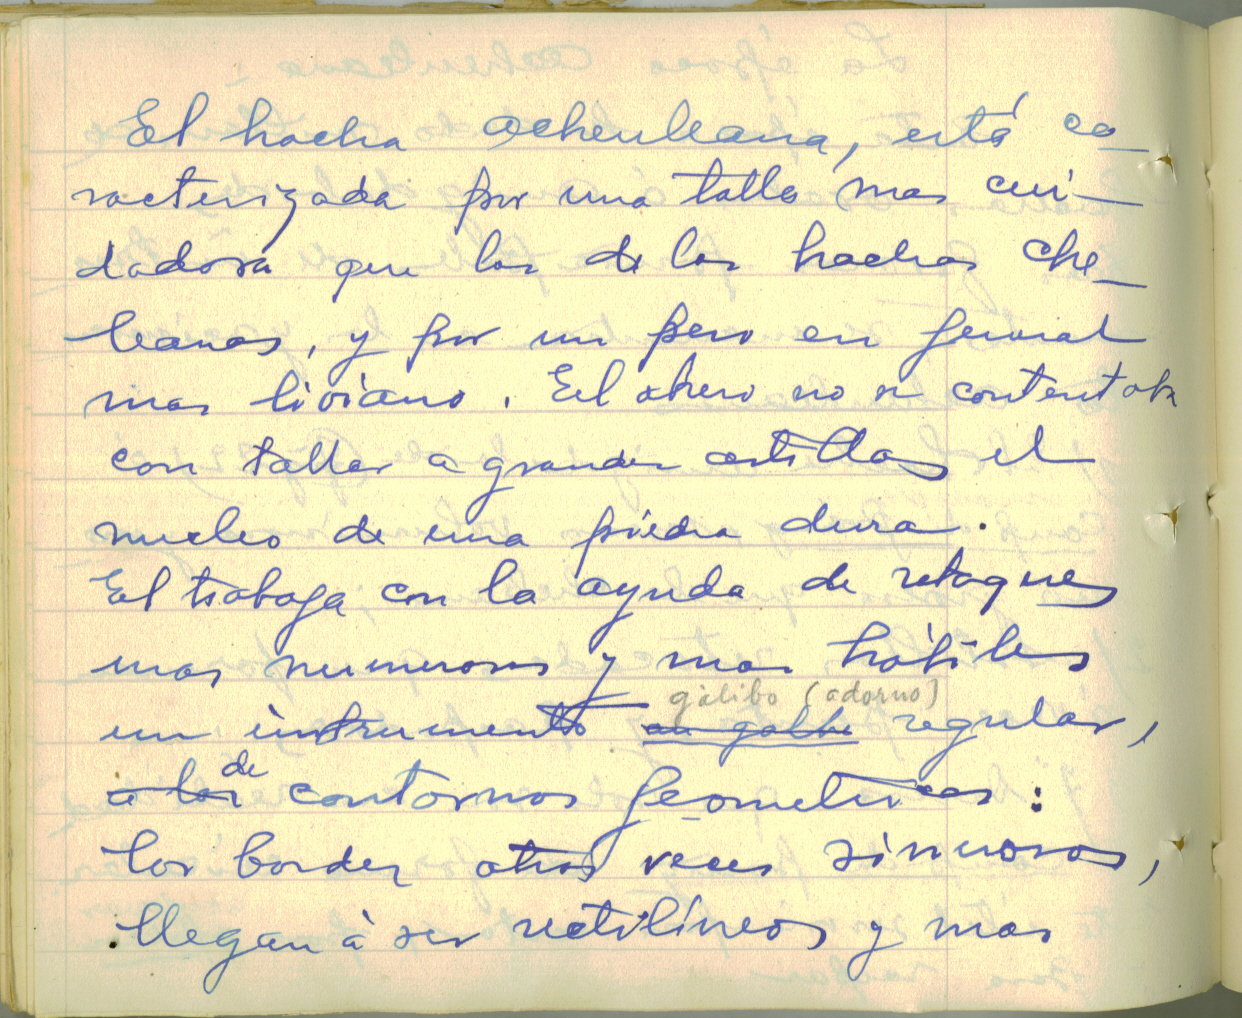 El hacha acheuleana, está ca-
racterizada por una talla mas cui-
dadosa que las de las hachas che-
leanas, y por un peso en general
mas liviano. El obrero no se contentaba
con tallar a grandes astillas el
nucleo de una piedra dura.
El trabaja con la ayuda de retoques
mas numerosos y mas hábiles
gálibo (adorno)
un instrumento en galbe regular,
de
a los contornos geometricos:
los bordes otras veces sinuosos,
llegan à ser rectilíneos y mas